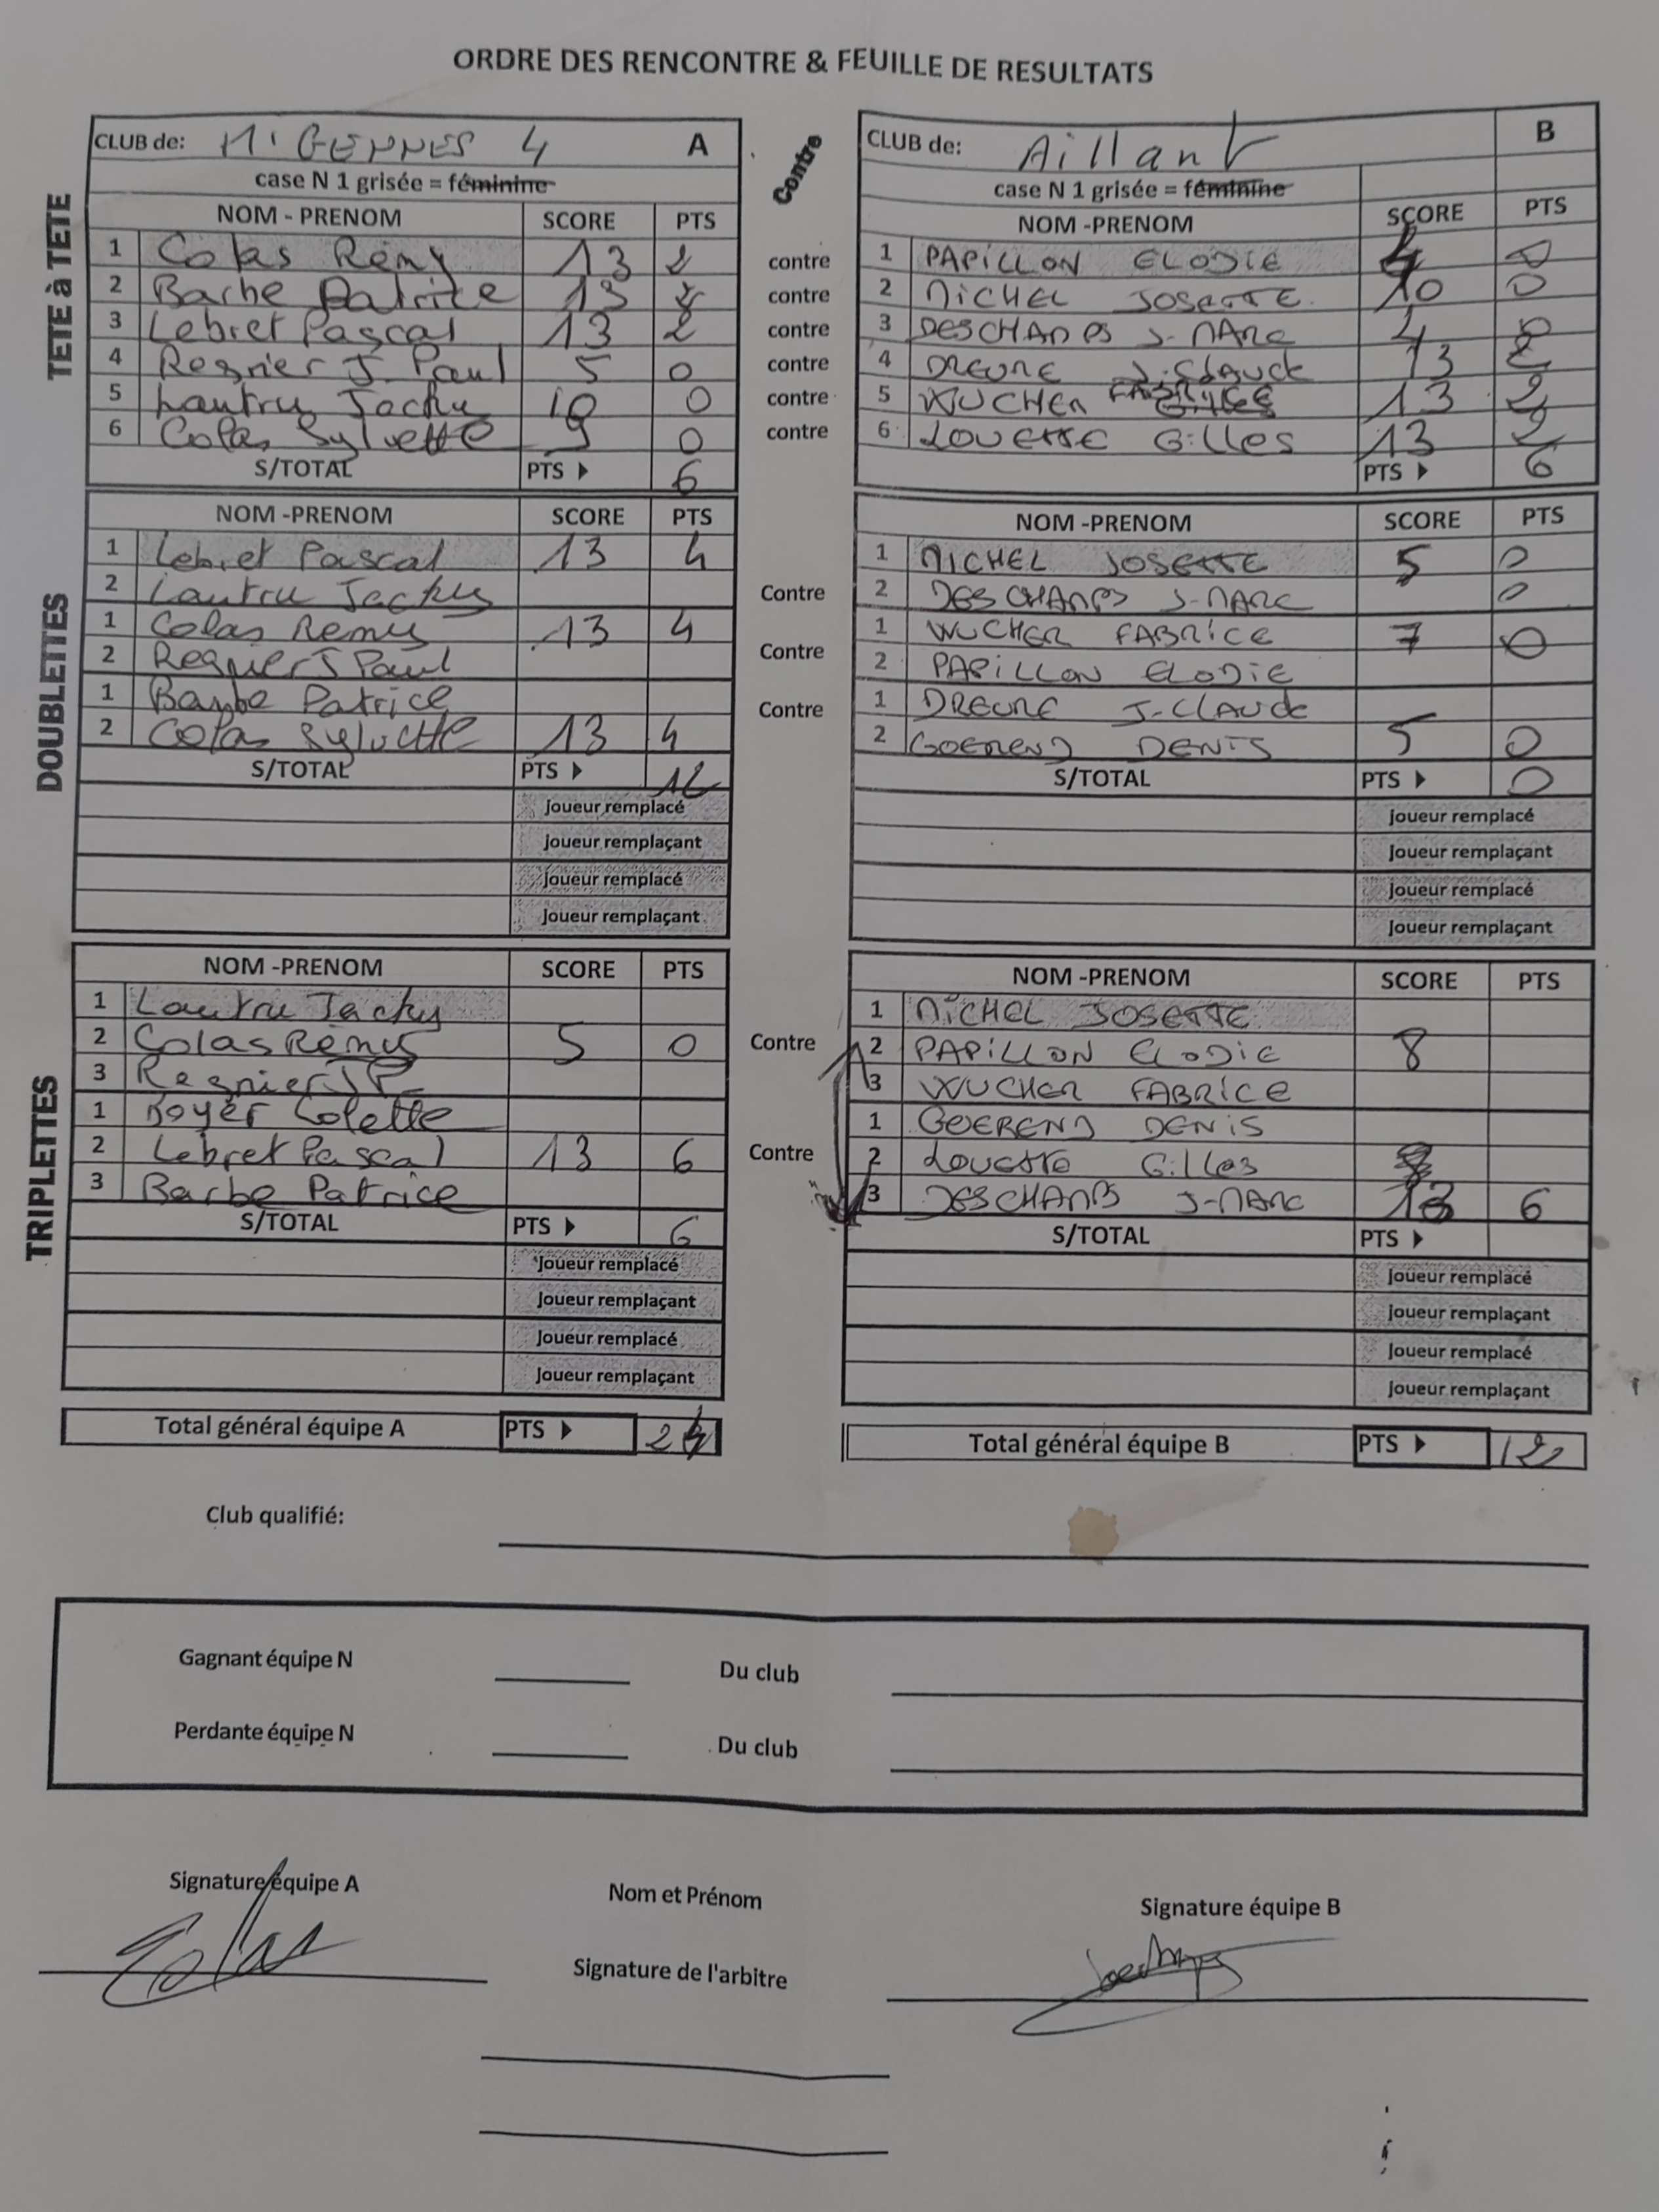 ORDRE DES RENCONTRE & FEUILLE DE RESULTATS
CLUB de: MIGENNES 4 A Contre CLUB de: Aillant B
case N 1 grisée = féminine case N 1 grisée = féminine
TETE à TETE
NOM - PRENOM SCORE PTS NOM -PRENOM SCORE PTS
1 Colas Rémy 13 2 contre 1 PAPILLON ELODIE 4 0
2 Barbe Patrice 13 2 contre 2 MICHEL JOSETTE 10 0
3 Lebret Pascal 13 2 contre 3 DESCHAMPS J-MARC 4 0
4 Regnier J. Paul 5 0 contre 4 DREUNE J.Claude 13 2
5 Lautru Jacky 10 0 contre 5 WUCHER FABRICE 13 2
6 Colas Sylvette 9 0 contre 6 LOUETTE Gilles 13 2
S/TOTAL PTS 6 PTS 6
DOUBLETTES
NOM -PRENOM SCORE PTS NOM -PRENOM SCORE PTS
1 Lebret Pascal 13 4 1 MICHEL JOSETTE 5 0
2 Lautru Jacky Contre 2 DESCHAMPS J-MARC 0
1 Colas Remy 13 4 1 WUCHER FABRICE 7 0
2 Regnier J Paul Contre 2 PAPILLON ELODIE
1 Barbe Patrice Contre 1 DREUNE J-CLAUDE
2 Colas Sylvette 13 4 2 GOEREND DENIS 5 0
S/TOTAL PTS 12 S/TOTAL PTS 0
Joueur remplacé Joueur remplacé
Joueur remplaçant Joueur remplaçant
Joueur remplacé Joueur remplacé
Joueur remplaçant Joueur remplaçant
TRIPLETTES
NOM -PRENOM SCORE PTS NOM -PRENOM SCORE PTS
1 Lautru Jacky 1 MICHEL JOSETTE
2 Colas Rémy 5 0 Contre 2 PAPILLON ELODIE 8
3 Regnier J P 3 WUCHER FABRICE
1 Boyer Colette 1 GOEREND DENIS
2 Lebret Pascal 13 6 Contre 2 LOUETTE Gilles
3 Barbe Patrice 3 DESCHAMPS J-MARC 13 6
S/TOTAL PTS 6 S/TOTAL PTS
Joueur remplacé Joueur remplacé
Joueur remplaçant Joueur remplaçant
Joueur remplacé Joueur remplacé
Joueur remplaçant Joueur remplaçant
Total général équipe A PTS 24 Total général équipe B PTS 12
Club qualifié:
Gagnant équipe N Du club
Perdante équipe N Du club
Signature équipe A Nom et Prénom Signature équipe B
Colas
Signature de l'arbitre